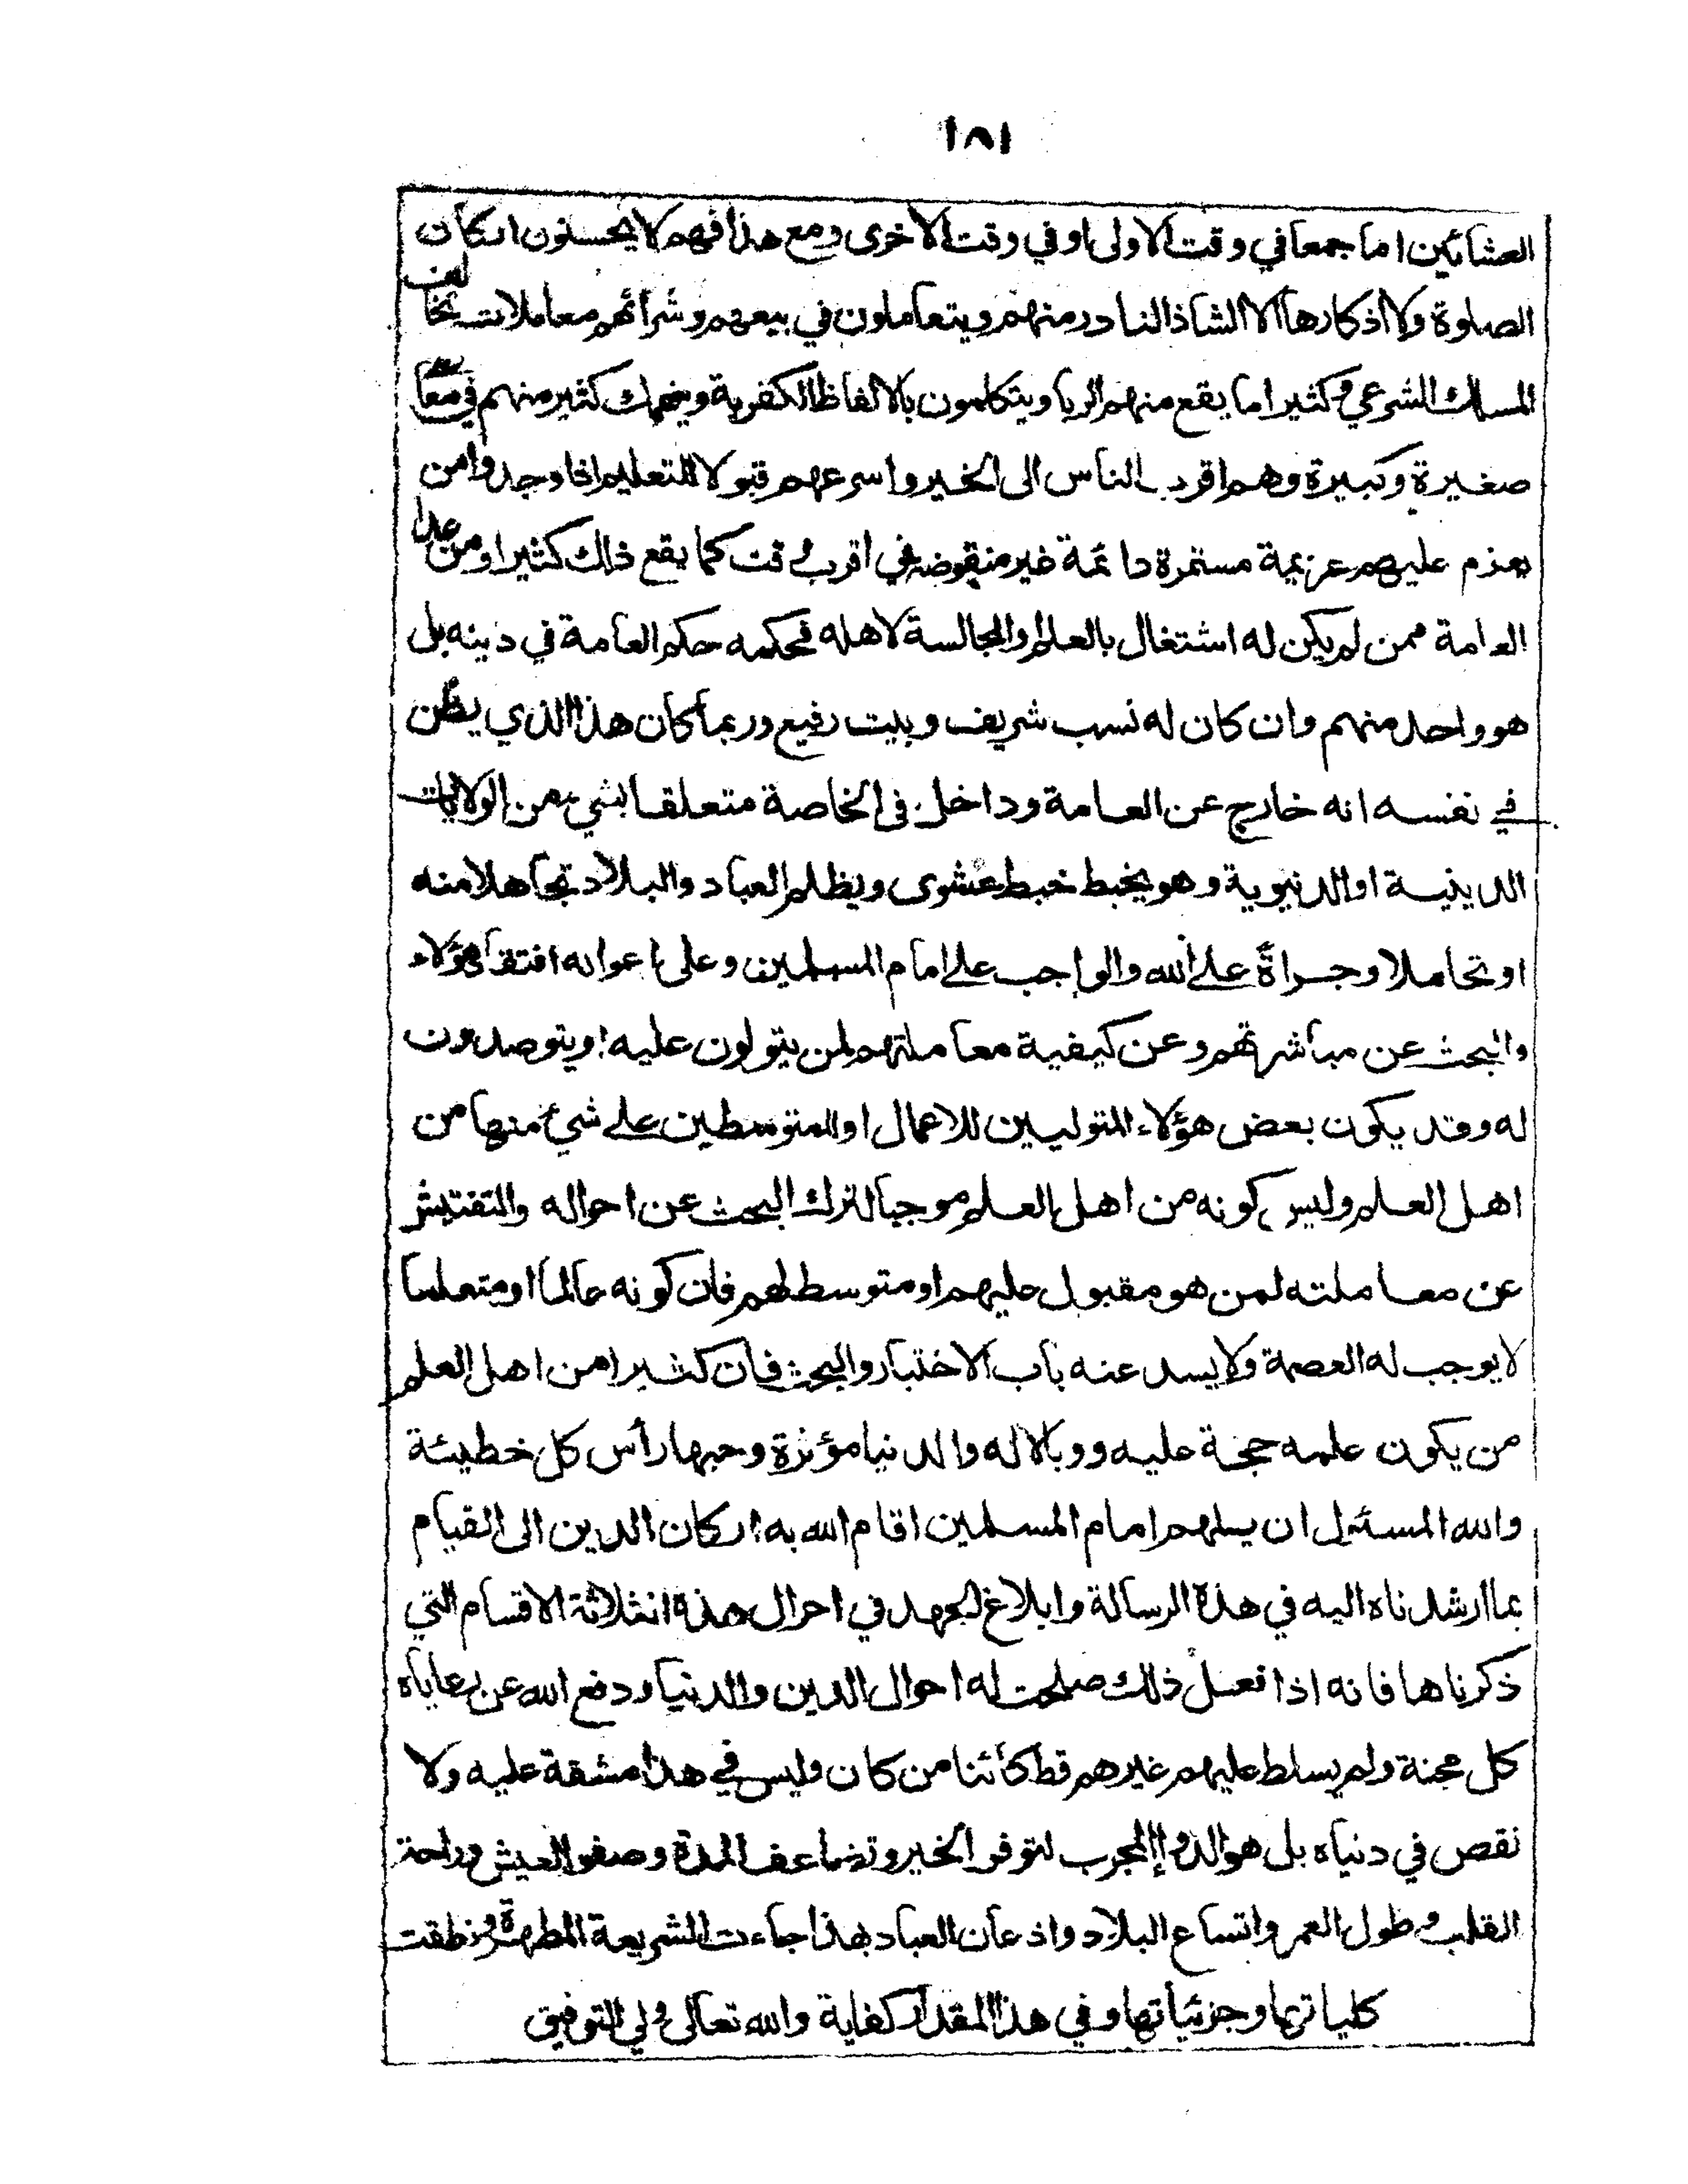 ١٨١
العشائين اما جمعا في وقت الاولى او في وقت الاخرى ومع هذا فهم لا يحسنون اركان
الصلوة ولا اذكارها الا الشاذ النادر منهم ويتعاملون في بيعهم وشرائهم معاملات تخالف
المسلك الشرعي وكثيرا ما يقع منهم الربا ويتكلمون بالالفاظ الكفرية وينهمك كثير منهم في معاصي
صغيرة وكبيرة وهم اقرب الناس الى الخير واسرعهم قبولا للتعليم اذا وجدوا من
يعزم عليهم عزيمة مستمرة دائمة غير منقوضة في اقرب وقت كما يقع ذلك كثيرا ومن عدا
العامة ممن لم يكن له اشتغال بالعلم والمجالسة لاهله فحكمه حكم العامة في دينه بل
هو واحد منهم وان كان له نسب شريف وبيت رفيع وربما كان هذا الذي يظن
في نفسه انه خارج عن العامة وداخل في الخاصة متعلقا بشيء من الولايات
الدينية او الدنيوية وهو يخبط خبط عشوى ويظلم العباد والبلاد تجاهلا منه
او تحاملا وجراة على الله والواجب على امام المسلمين وعلى اعوانه افتقاد هؤلاء
والبحث عن مباشرتهم وعن كيفية معاملتهم لمن يتولون عليه او يتوصدون
له وقد يكون بعض هؤلاء المتوليين للاعمال او المتوسطين على شيء منها من
اهل العلم وليس كونه من اهل العلم موجبا لترك البحث عن احواله والتفتيش
عن معاملته لمن هو مقبول عليهم او متوسط لهم فان كونه عالما او متعلما
لا يوجب له العصمة ولا يسد عنه باب الاختبار والبحث فان كثيرا من اهل العلم
من يكون علمه حجة عليه ووبالا له والدنيا مؤثرة وحبها رأس كل خطيئة
والله المسئول ان يلهم امام المسلمين اقام الله به اركان الدين الى القيام
بما ارشدناه اليه في هذه الرسالة وابلاغ الجهد في احوال هذه الثلاثة الاقسام التي
ذكرناها فانه اذا فعل ذلك صلحت له احوال الدين والدنيا ودفع الله عن رعاياه
كل محنة ولم يسلط عليهم غيرهم قط كائنا من كان وليس في هذا مشقة عليه ولا
نقص في دنياه بل هو الدواء المجرب لتوفر الخير وتضاعف المدة وصفو العيش وراحة
القلب وطول العمر واتساع البلاد واذعان العباد بهذا جاءت الشريعة المطهرة ونطقت
كلياتها وجزئياتها وفي هذا المقدار كفاية والله تعالى ولي التوفيق